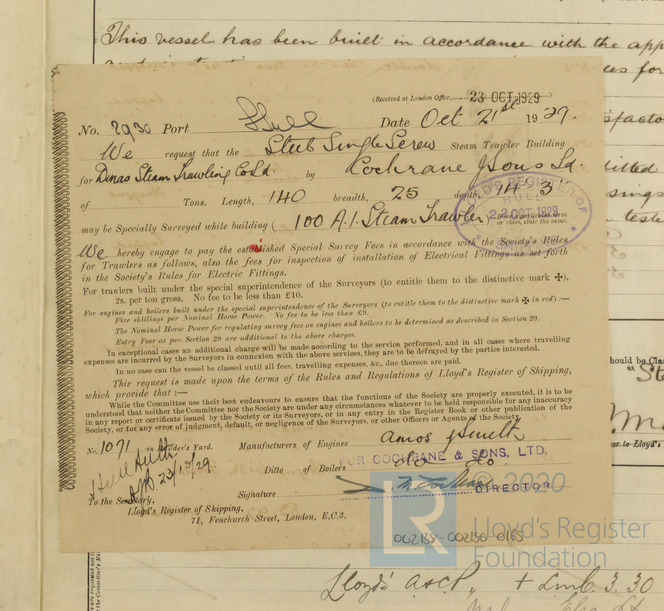 This vessel has been built in accordance with the app
(Received at London Office, 23 OCT 1929)
No. 2930 Port Hull Date Oct 21st 1929.
We request that the Steel Single Screw Steam Trawler Building
for Dinas Steam Trawling Co Ld. by Cochrane & Sons Ld.
of Tons. Length, 140 breadth, 25 depth, 14 3
may be Specially Surveyed while building (100 A.1. Steam Trawler)
We hereby engage to pay the established Special Survey Fees in accordance with the Society's Rules
for Trawlers as follows, also the fees for inspection of installation of Electrical Fittings as set forth
in the Society's Rules for Electric Fittings.
For trawlers built under the special superintendence of the Surveyors (to entitle them to the distinctive mark ✠),
2s. per ton gross. No fee to be less than £10.
For engines and boilers built under the special superintendence of the Surveyors (to entitle them to the distinctive mark ✠ in red) :—
Five shillings per Nominal Horse Power. No fee to be less than £9.
The Nominal Horse Power for regulating survey fees on engines and boilers to be determined as described in Section 29.
Entry Fees as per Section 28 are additional to the above charges.
In exceptional cases an additional charge will be made according to the service performed, and in all cases where travelling
expenses are incurred by the Surveyors in connexion with the above services, they are to be defrayed by the parties interested.
In no case can the vessel be classed until all fees, travelling expenses, &c., due thereon are paid.
This request is made upon the terms of the Rules and Regulations of Lloyd's Register of Shipping,
which provide that :—
While the Committee use their best endeavours to ensure that the functions of the Society are properly executed, it is to be
understood that neither the Committee nor the Society are under any circumstances whatever to be held responsible for any inaccuracy
in any report or certificate issued by the Society or its Surveyors, or in any entry in the Register Book or other publication of the
Society, or for any error of judgment, default, or negligence of the Surveyors, or other Officers or Agents of the Society.
No. 1071 in Builder's Yard. Manufacturers of Engines Amos & Smith
FOR COCHRANE & SONS, LTD.
Ditto of Boilers do do.
23/10/29.
Signature DIRECTOR
To the Secretary,
Lloyd's Register of Shipping,
71, Fenchurch Street, London, E.C.3.
LR 2020
Lloyd's Register
Foundation
002188-002190-0185
Lloyd's A & C.P., + LMC. 3. 30